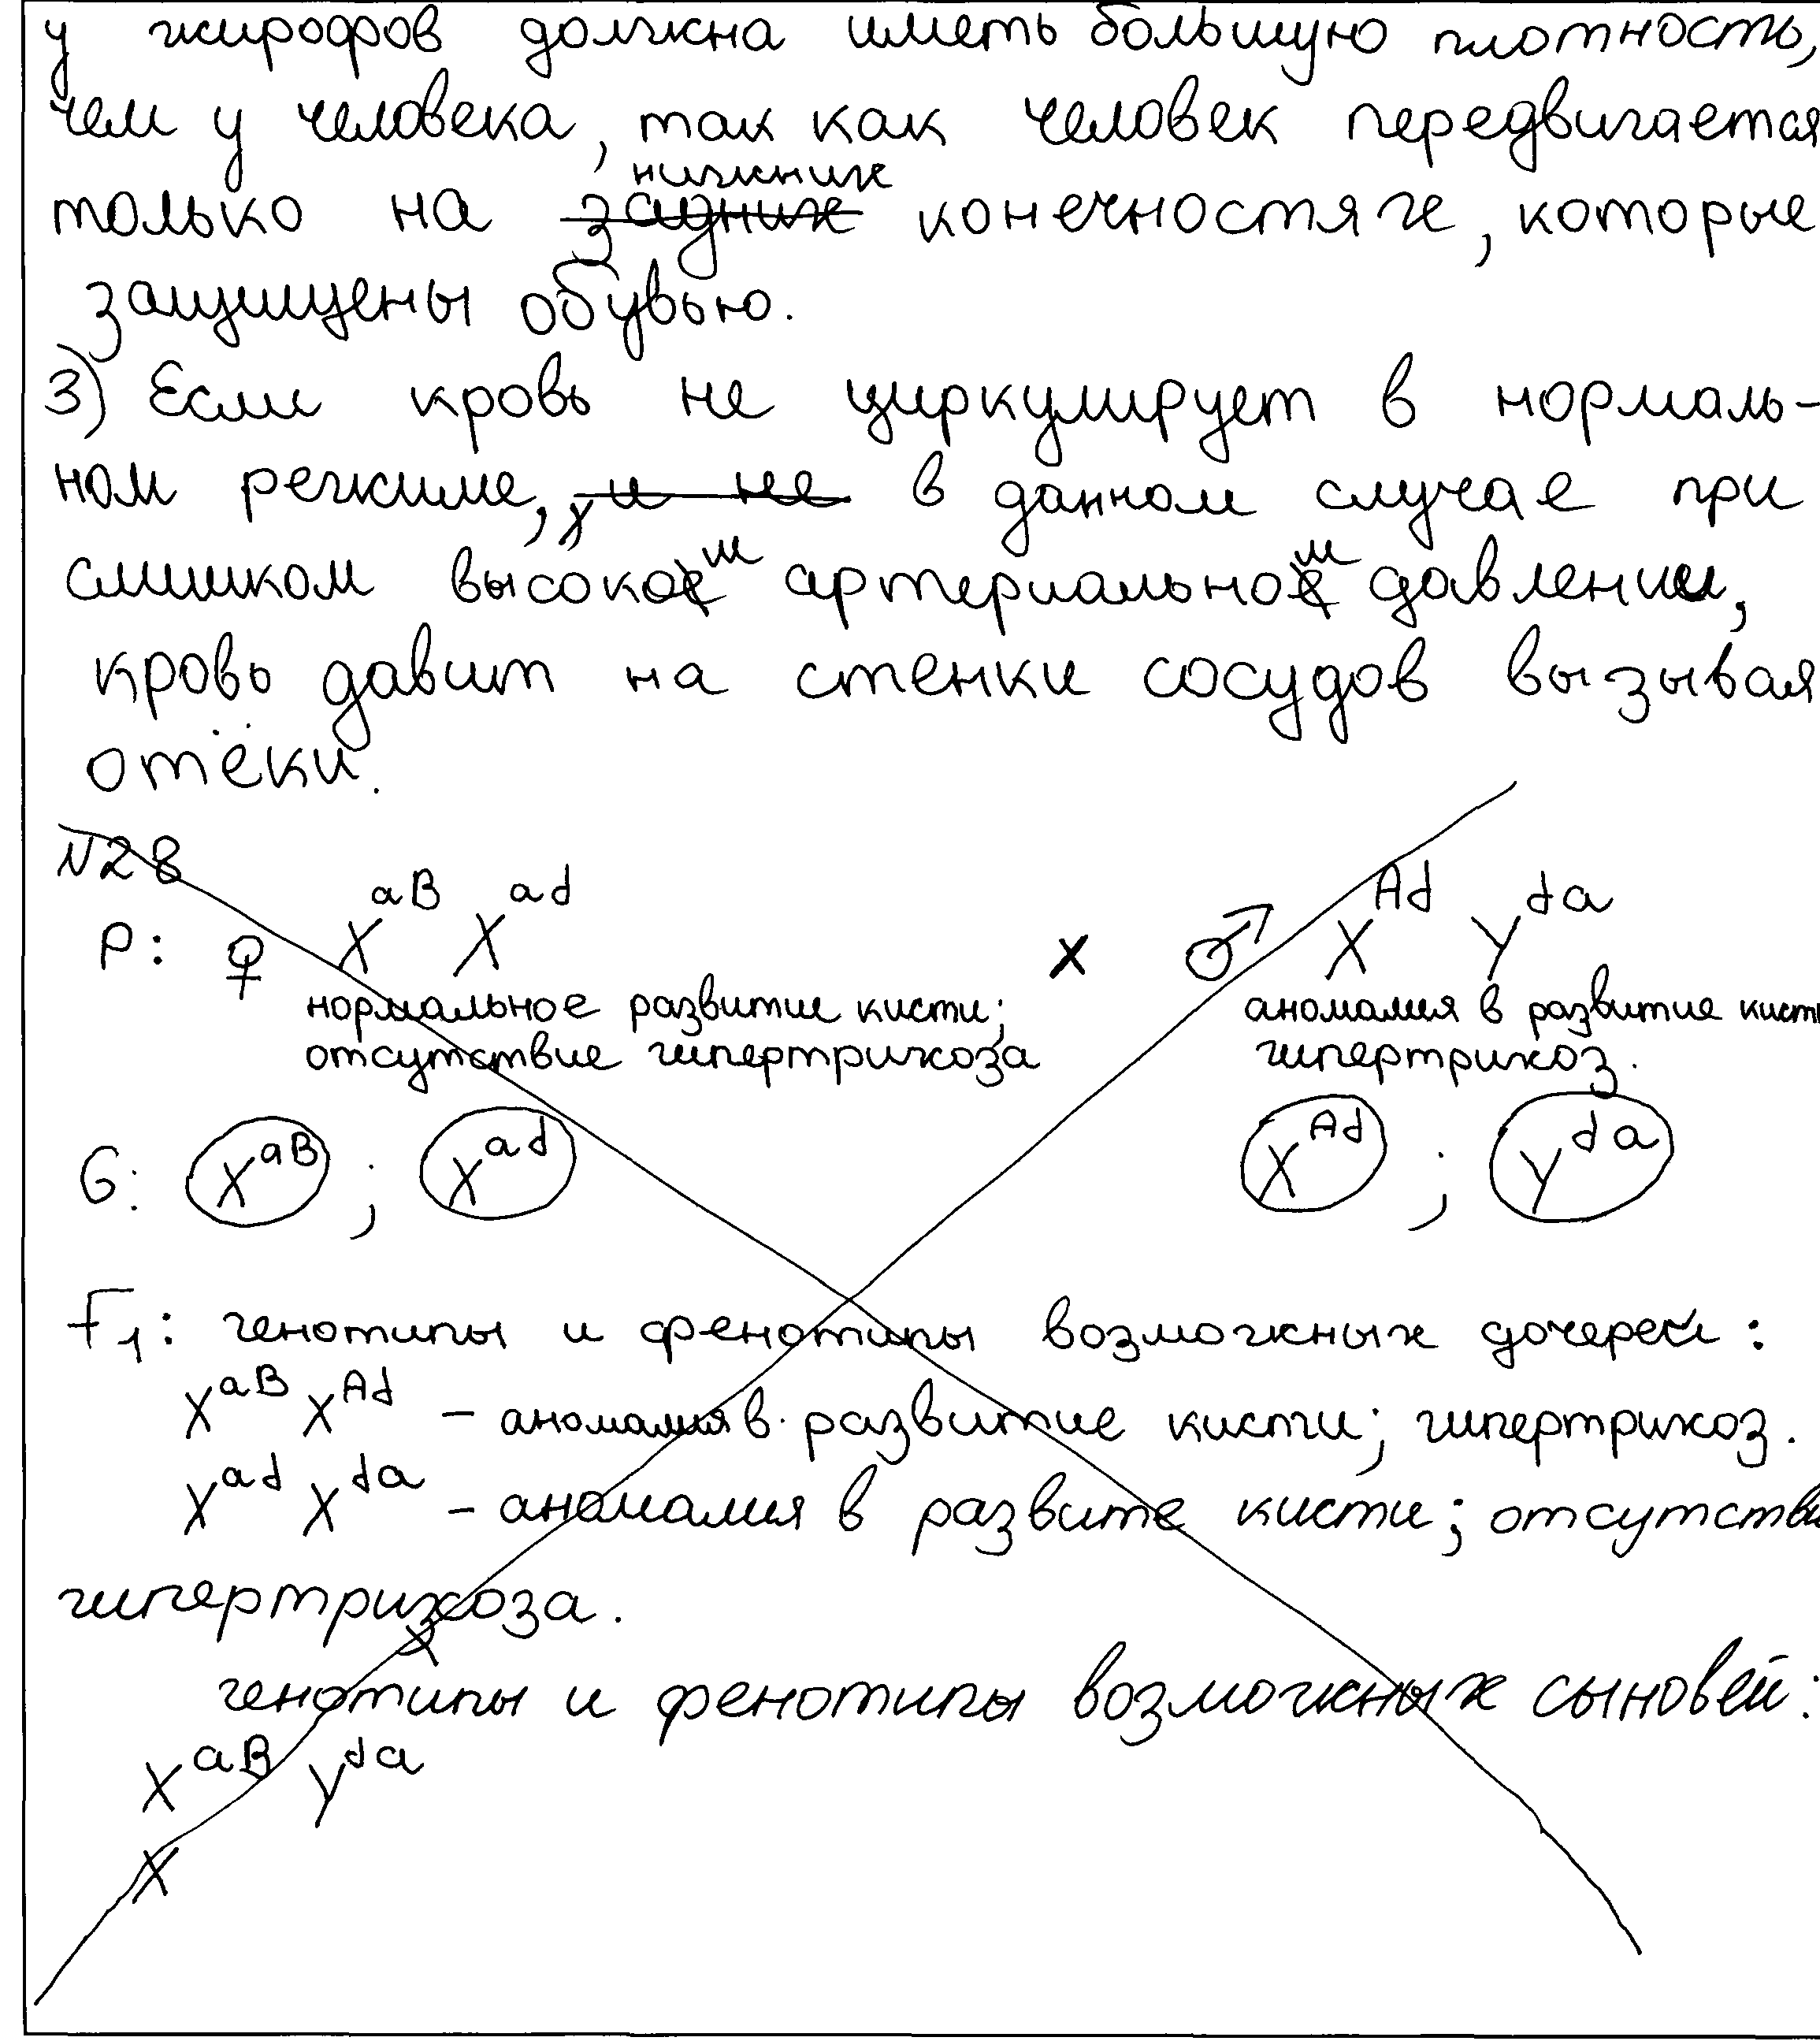 у жирофов должна иметь большую плотность,
чем у человека, так как человек передвигается
нижних
только на задних конечностях, которые
защищены обувью.
3) Если кровь не циркулирует в нормаль-
ном режиме, и не в данном случае при
слишком высоком артериальном давлении,
кровь давит на стенки сосудов вызывая
отёки.
N28
P: ♀ X^aB X^ad x ♂ X^Ad Y^da
нормальное развитие кисти; аномалия в развитие кисти
отсутствие гипертрихоза гипертрихоз.
G: X^aB ; X^ad X^Ad ; Y^da
F1: генотипы и фенотипы возможных дочерей:
X^aB X^Ad – аномалия в развитие кисти; гипертрихоз.
X^ad X^da – аномалия в развите кисти; отсутстви
гипертрихоза.
генотипы и фенотипы возможных сыновей:
X^aB Y^da
X